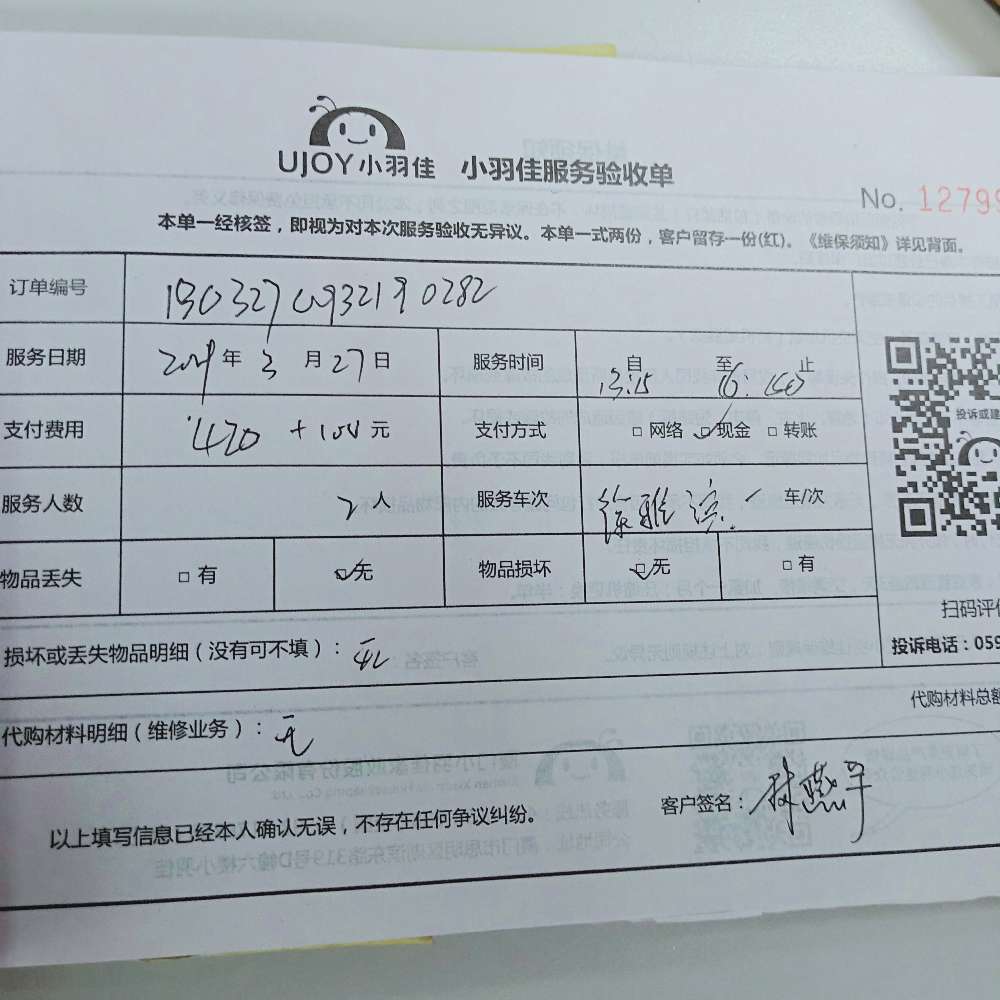 UJOY小羽佳 小羽佳服务验收单
No. 12799
本单一经核签，即视为对本次服务验收无异议。本单一式两份，客户留存一份(红)。《维保须知》详见背面。
订单编号 190327093219 0282
服务日期 2019年3月27日 服务时间 自13:15 至16:40止
支付费用 420 + 104元 支付方式 □ 网络 ☑现金 □ 转账
投诉或建
服务人数 2人 服务车次 徐雅 一 车/次
物品丢失 □ 有 ☑无 物品损坏 ☑无 □ 有
扫码评价
损坏或丢失物品明细（没有可不填）：无
投诉电话：059
代购材料明细（维修业务）：无
代购材料总额
以上填写信息已经本人确认无误，不存在任何争议纠纷。
客户签名：林燕